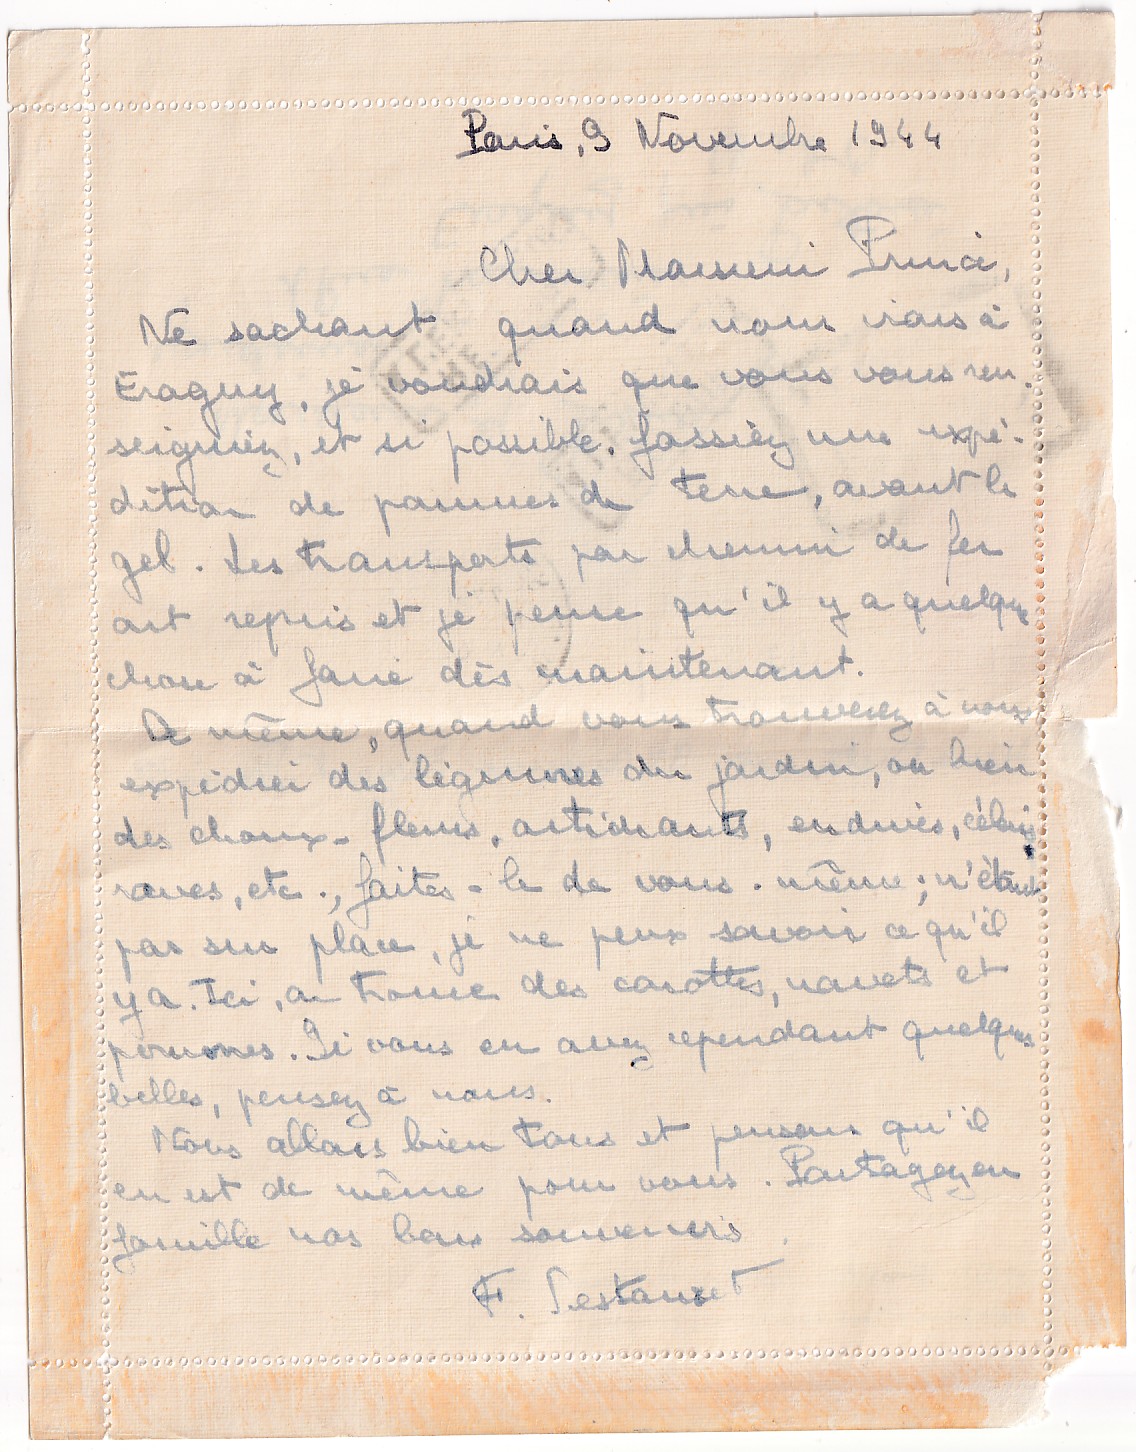 Paris, 9 Novembre 1944
Cher Monsieur Prince,
Ne sachant quand nous irons à
Eragny, je voudrais que vous vous ren-
seigniez, et si possible, fassiez une expé-
dition de pommes de terre, avant le
gel. Les transports par chemin de fer
ont repris et je pense qu'il y a quelque
chose à faire dès maintenant.
De même, quand vous trouverez à nous
expédier des légumes du jardin, ou bien
des choux-fleurs, artichauts, endives, céleris
raves, etc., faites-le de vous-même; n'étant
pas sur place, je ne peux savoir ce qu'il
y a. Ici, on trouve des carottes, navets et
pommes. Si vous en avez cependant quelques
belles, pensez à nous.
Nous allons bien tous et pensons qu'il
en est de même pour vous. Partagez en
famille nos bons souvenirs.
F.